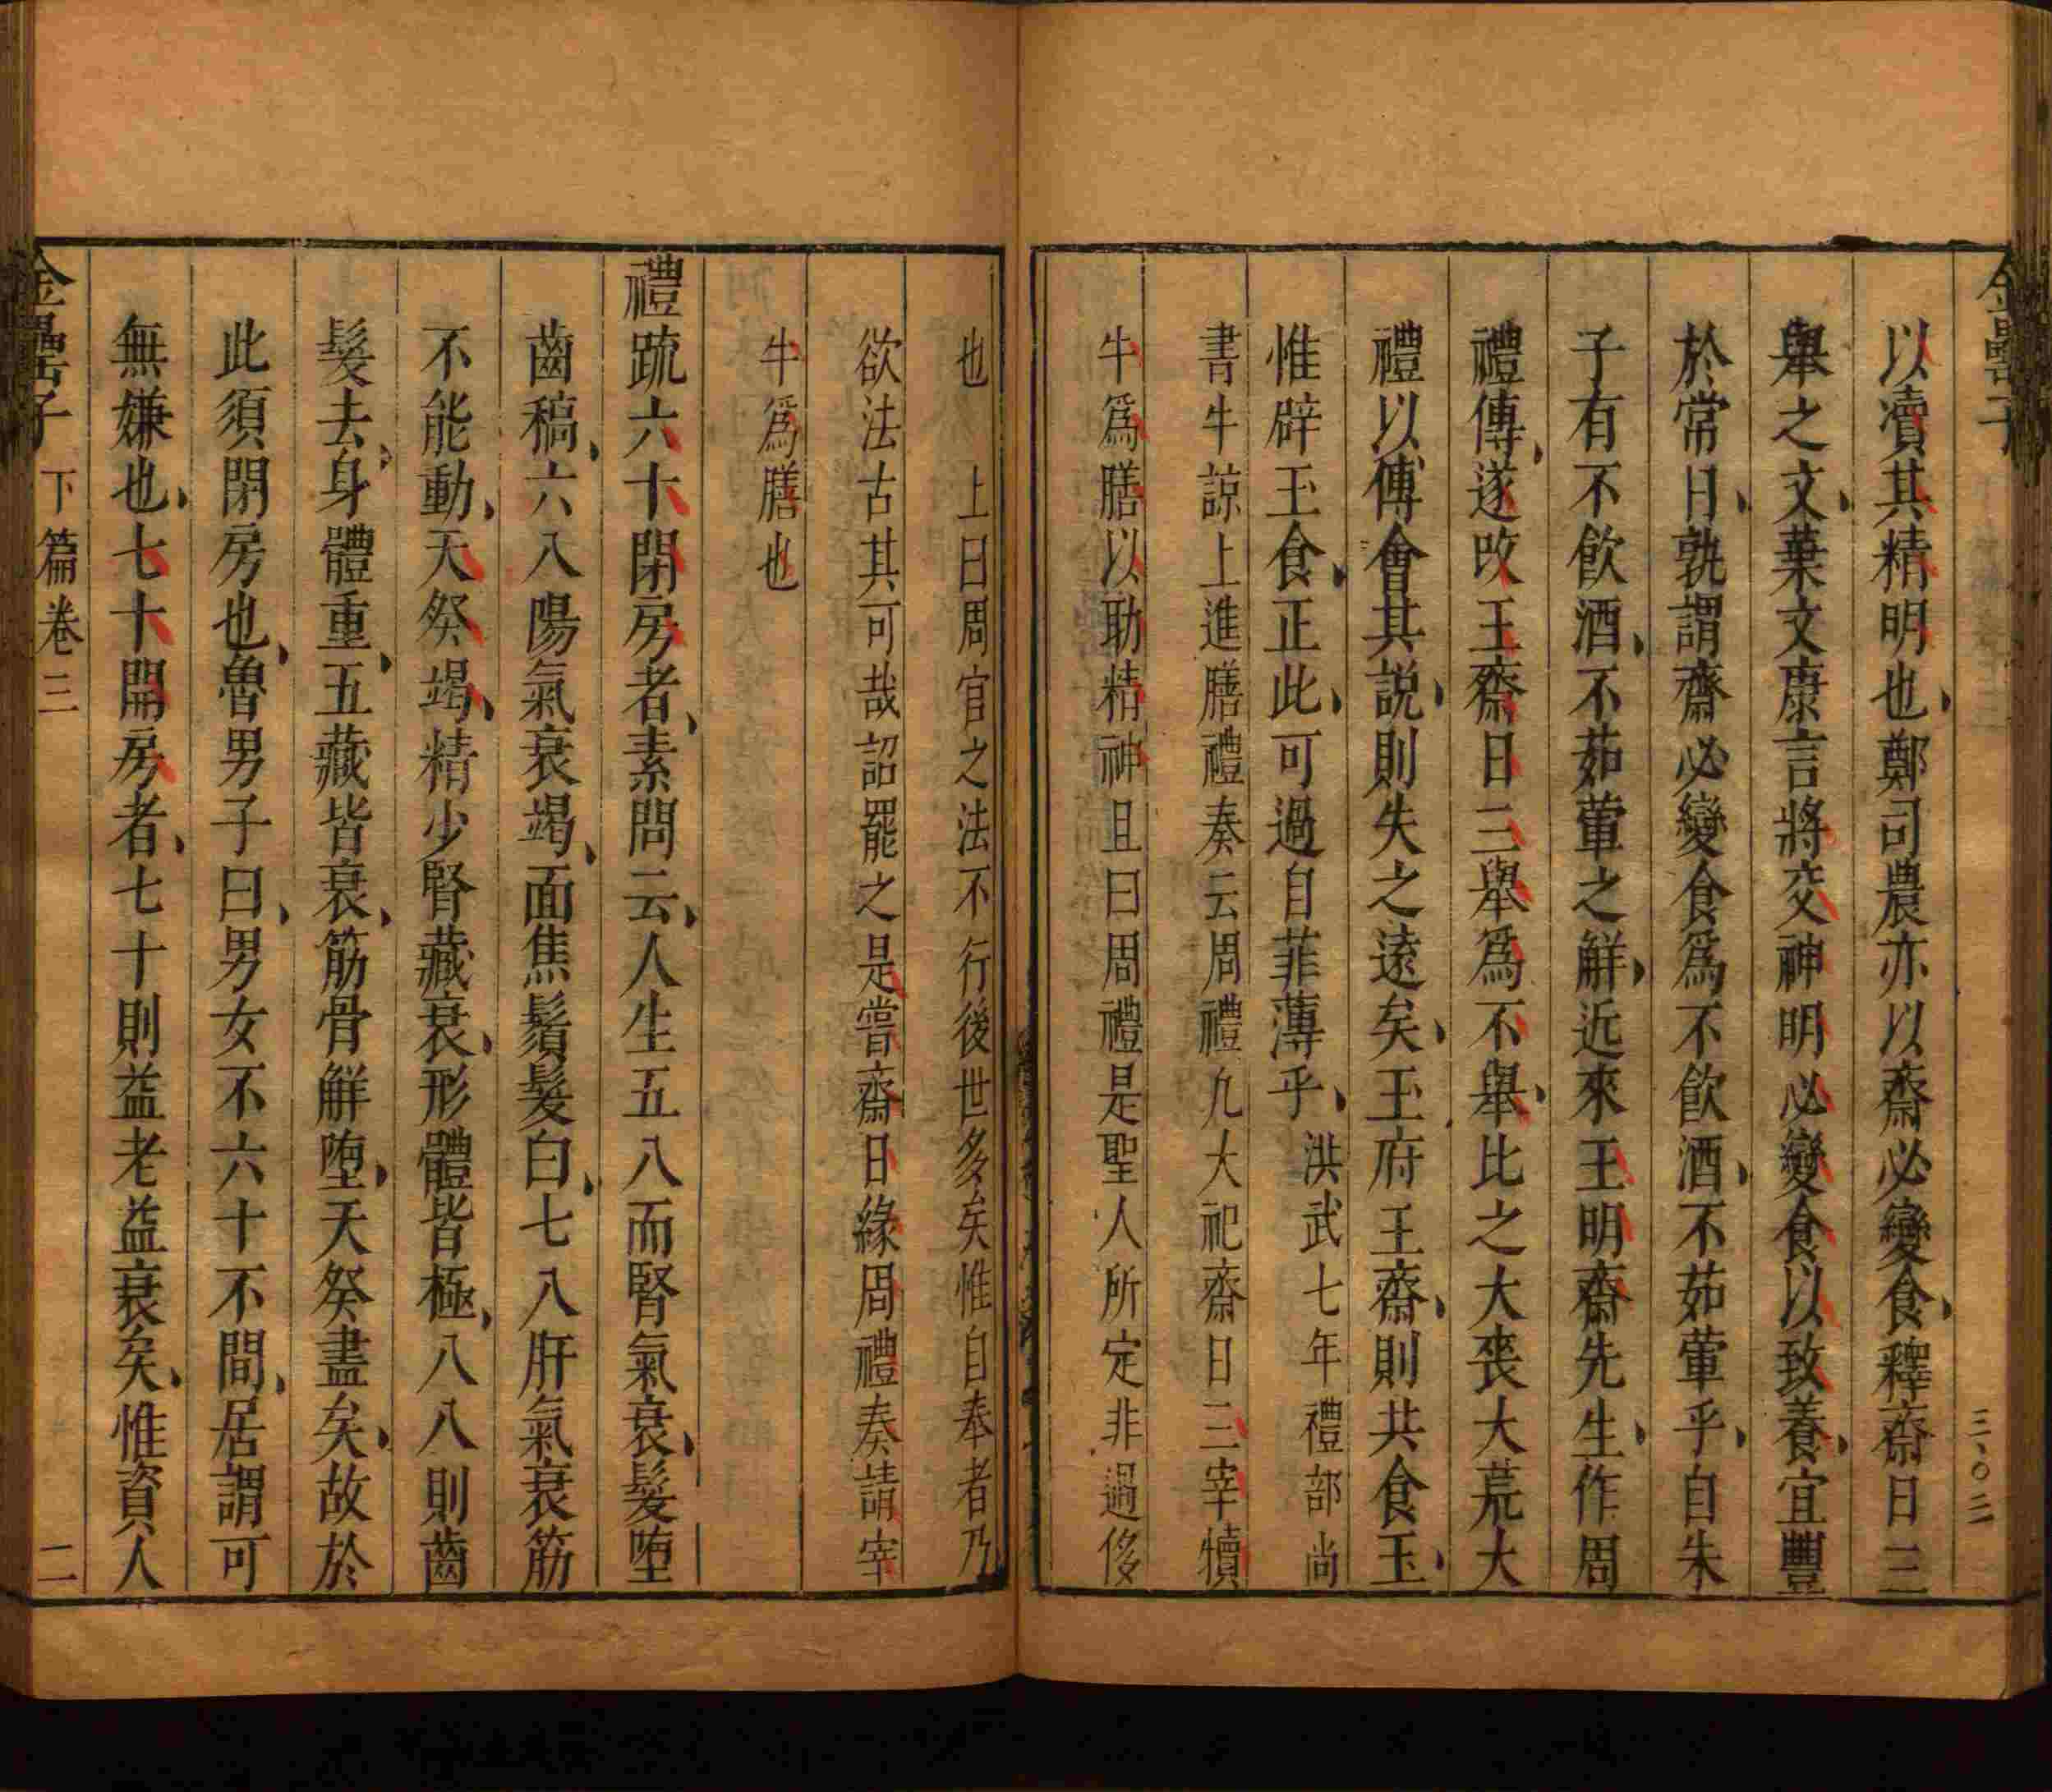 金罍子
三〇三
以瀆其精明也鄭司農亦以齋必變食釋齋日三
舉之文葉文康言將交神明必變食以致養宜豐
於常日孰謂齋必變食爲不飲酒不茹葷乎自朱
子有不飲酒不茹葷之解近來王明齋先生作周
禮傳遂改王齋日三舉爲不舉比之大喪大荒大
禮以傅會其說則失之遠矣玉府王齋則共食玉
惟辟玉食正此可過自菲薄乎洪武七年禮部尚
書牛諒上進膳禮奏云周禮凡大祀齋日三宰犢
牛爲膳以助精神且曰周禮是聖人所定非過侈
也 上曰周官之法不行後世多矣惟自奉者乃
欲法古其可哉詔罷之是嘗齋日緣周禮奏請宰
牛爲膳也
禮疏六十閉房者素問云人生五八而腎氣衰髮墮
齒稿六八陽氣衰竭面焦鬚髮白七八肝氣衰筋
不能動天癸竭精少腎藏衰形體皆極八八則齒
髮去身體重五藏皆衰筋骨解墮天癸盡矣故於
此須閉房也魯男子曰男女不六十不間居謂可
無嫌也七十開房者七十則益老益衰矣惟資人
金罍子 下篇卷三 二